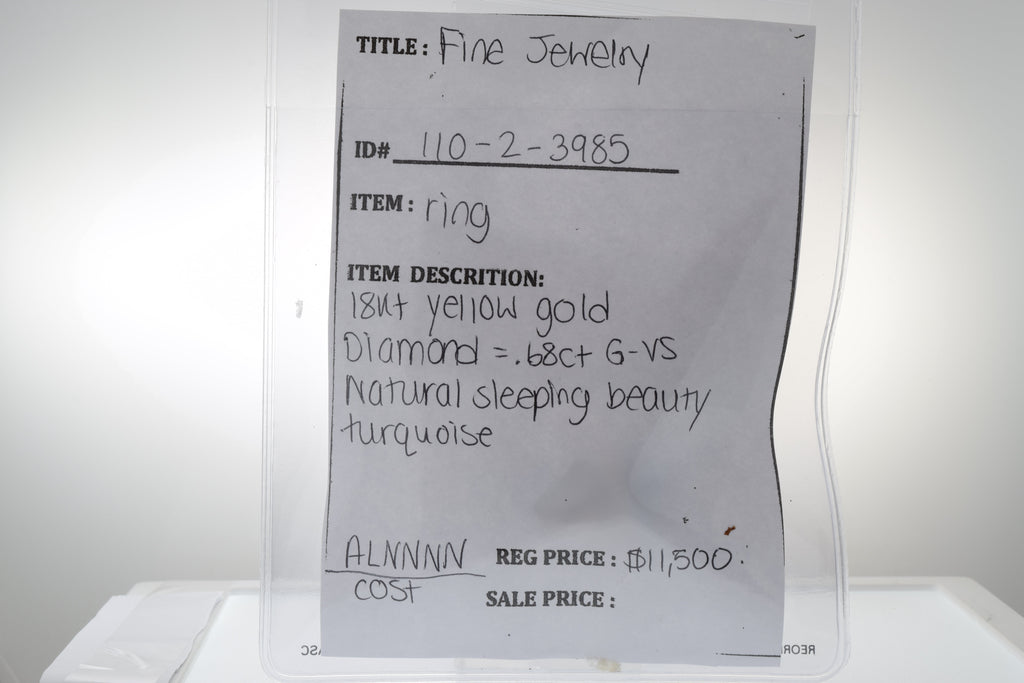 TITLE: Fine Jewelry
ID# 110-2-3985
ITEM: ring
ITEM DESCRITION:
18kt yellow gold
Diamond = .68ct G-VS
Natural sleeping beauty
turquoise
ALNNNN REG PRICE: $11,500.
COST SALE PRICE: